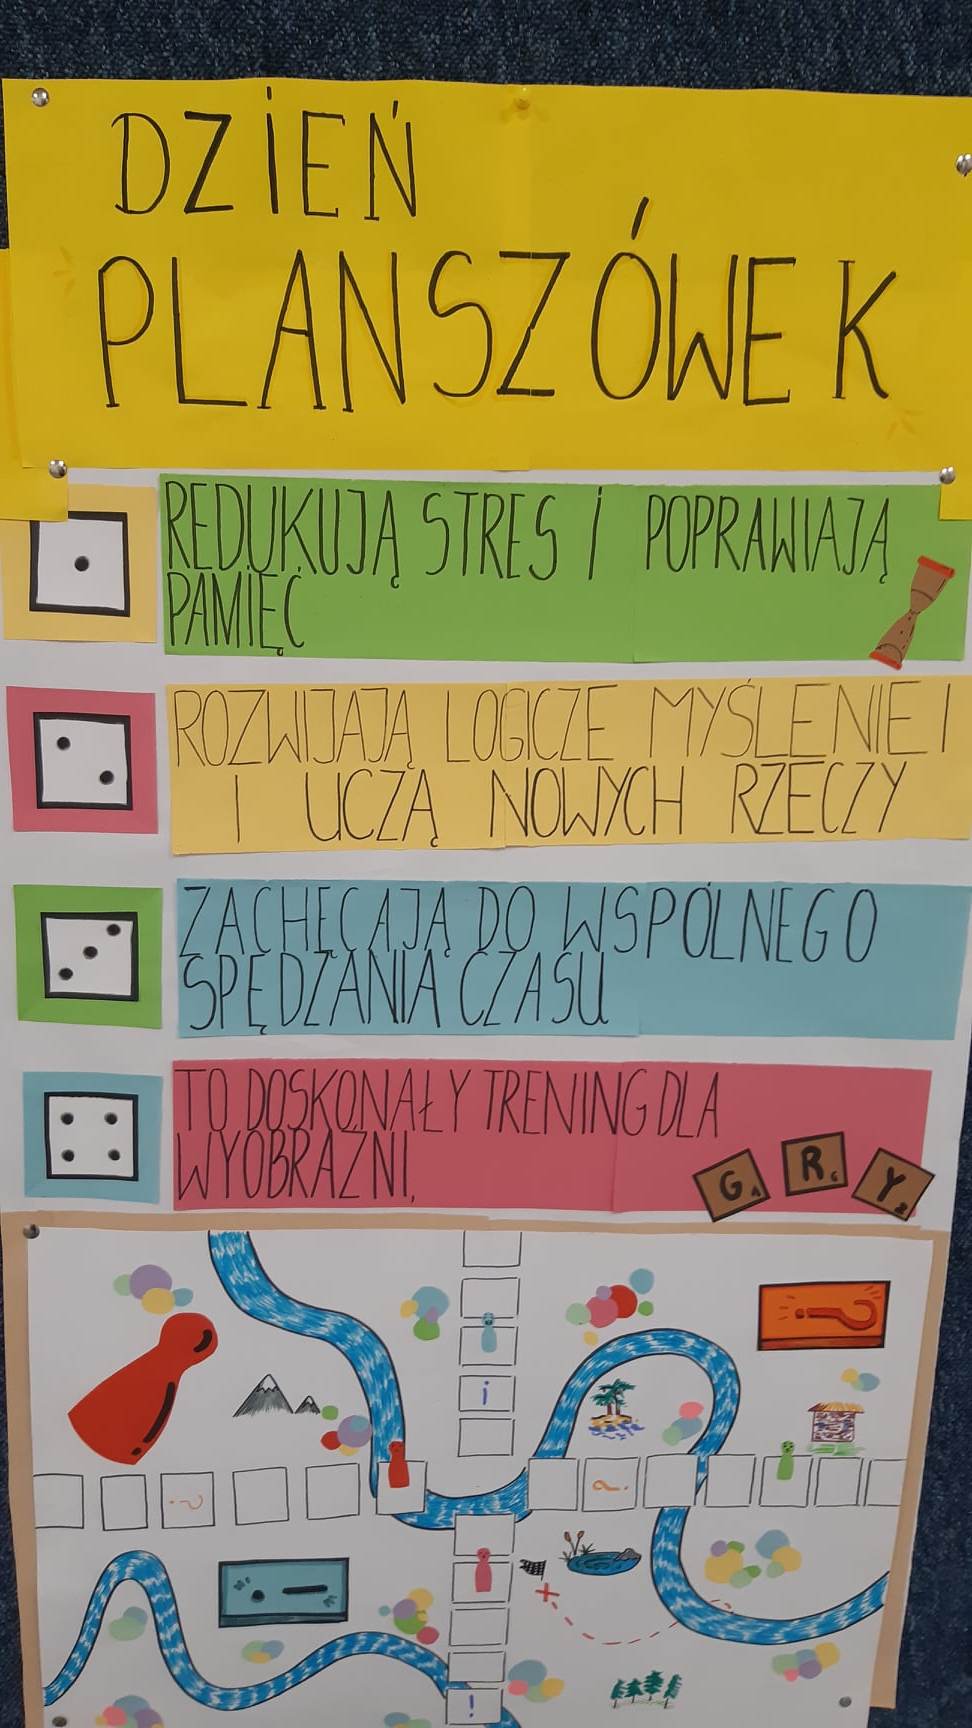 DZIEŃ
PLANSZÓWEK
REDUKUJĄ STRES I POPRAWIAJĄ
PAMIĘĆ
ROZWIJAJĄ LOGICZE MYŚLENIE I
I UCZĄ NOWYCH RZECZY
ZACHĘCAJĄ DO WSPÓLNEGO
SPĘDZANIA CZASU
TO DOSKONAŁY TRENING DLA
WYOBRAŹNI,
G R Y
?
i
?
?
!
!